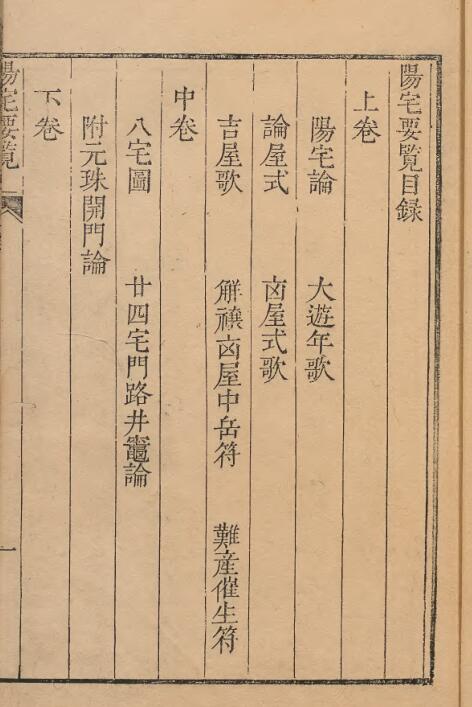 陽宅要覽目錄
上卷
陽宅論 大遊年歌
論屋式 凶屋式歌
吉屋歌 觧禳凶屋中岳符 難産催生符
中卷
八宅圖 廿四宅門路井竈論
附元珠開門論
下卷
陽宅要覽
一